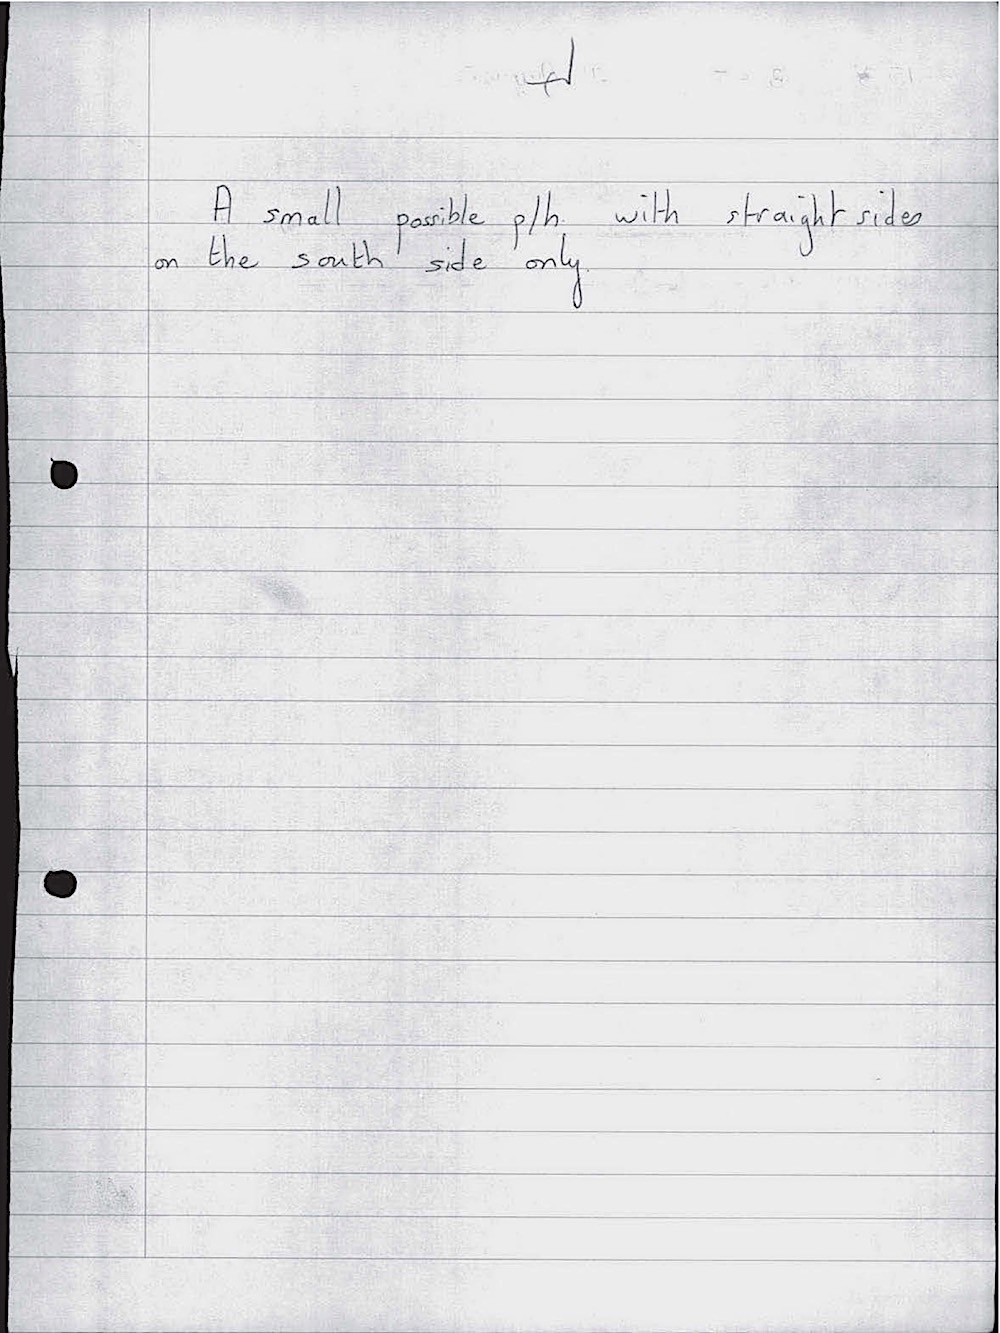 A small possible p/h. with straight sides
on the south side only.